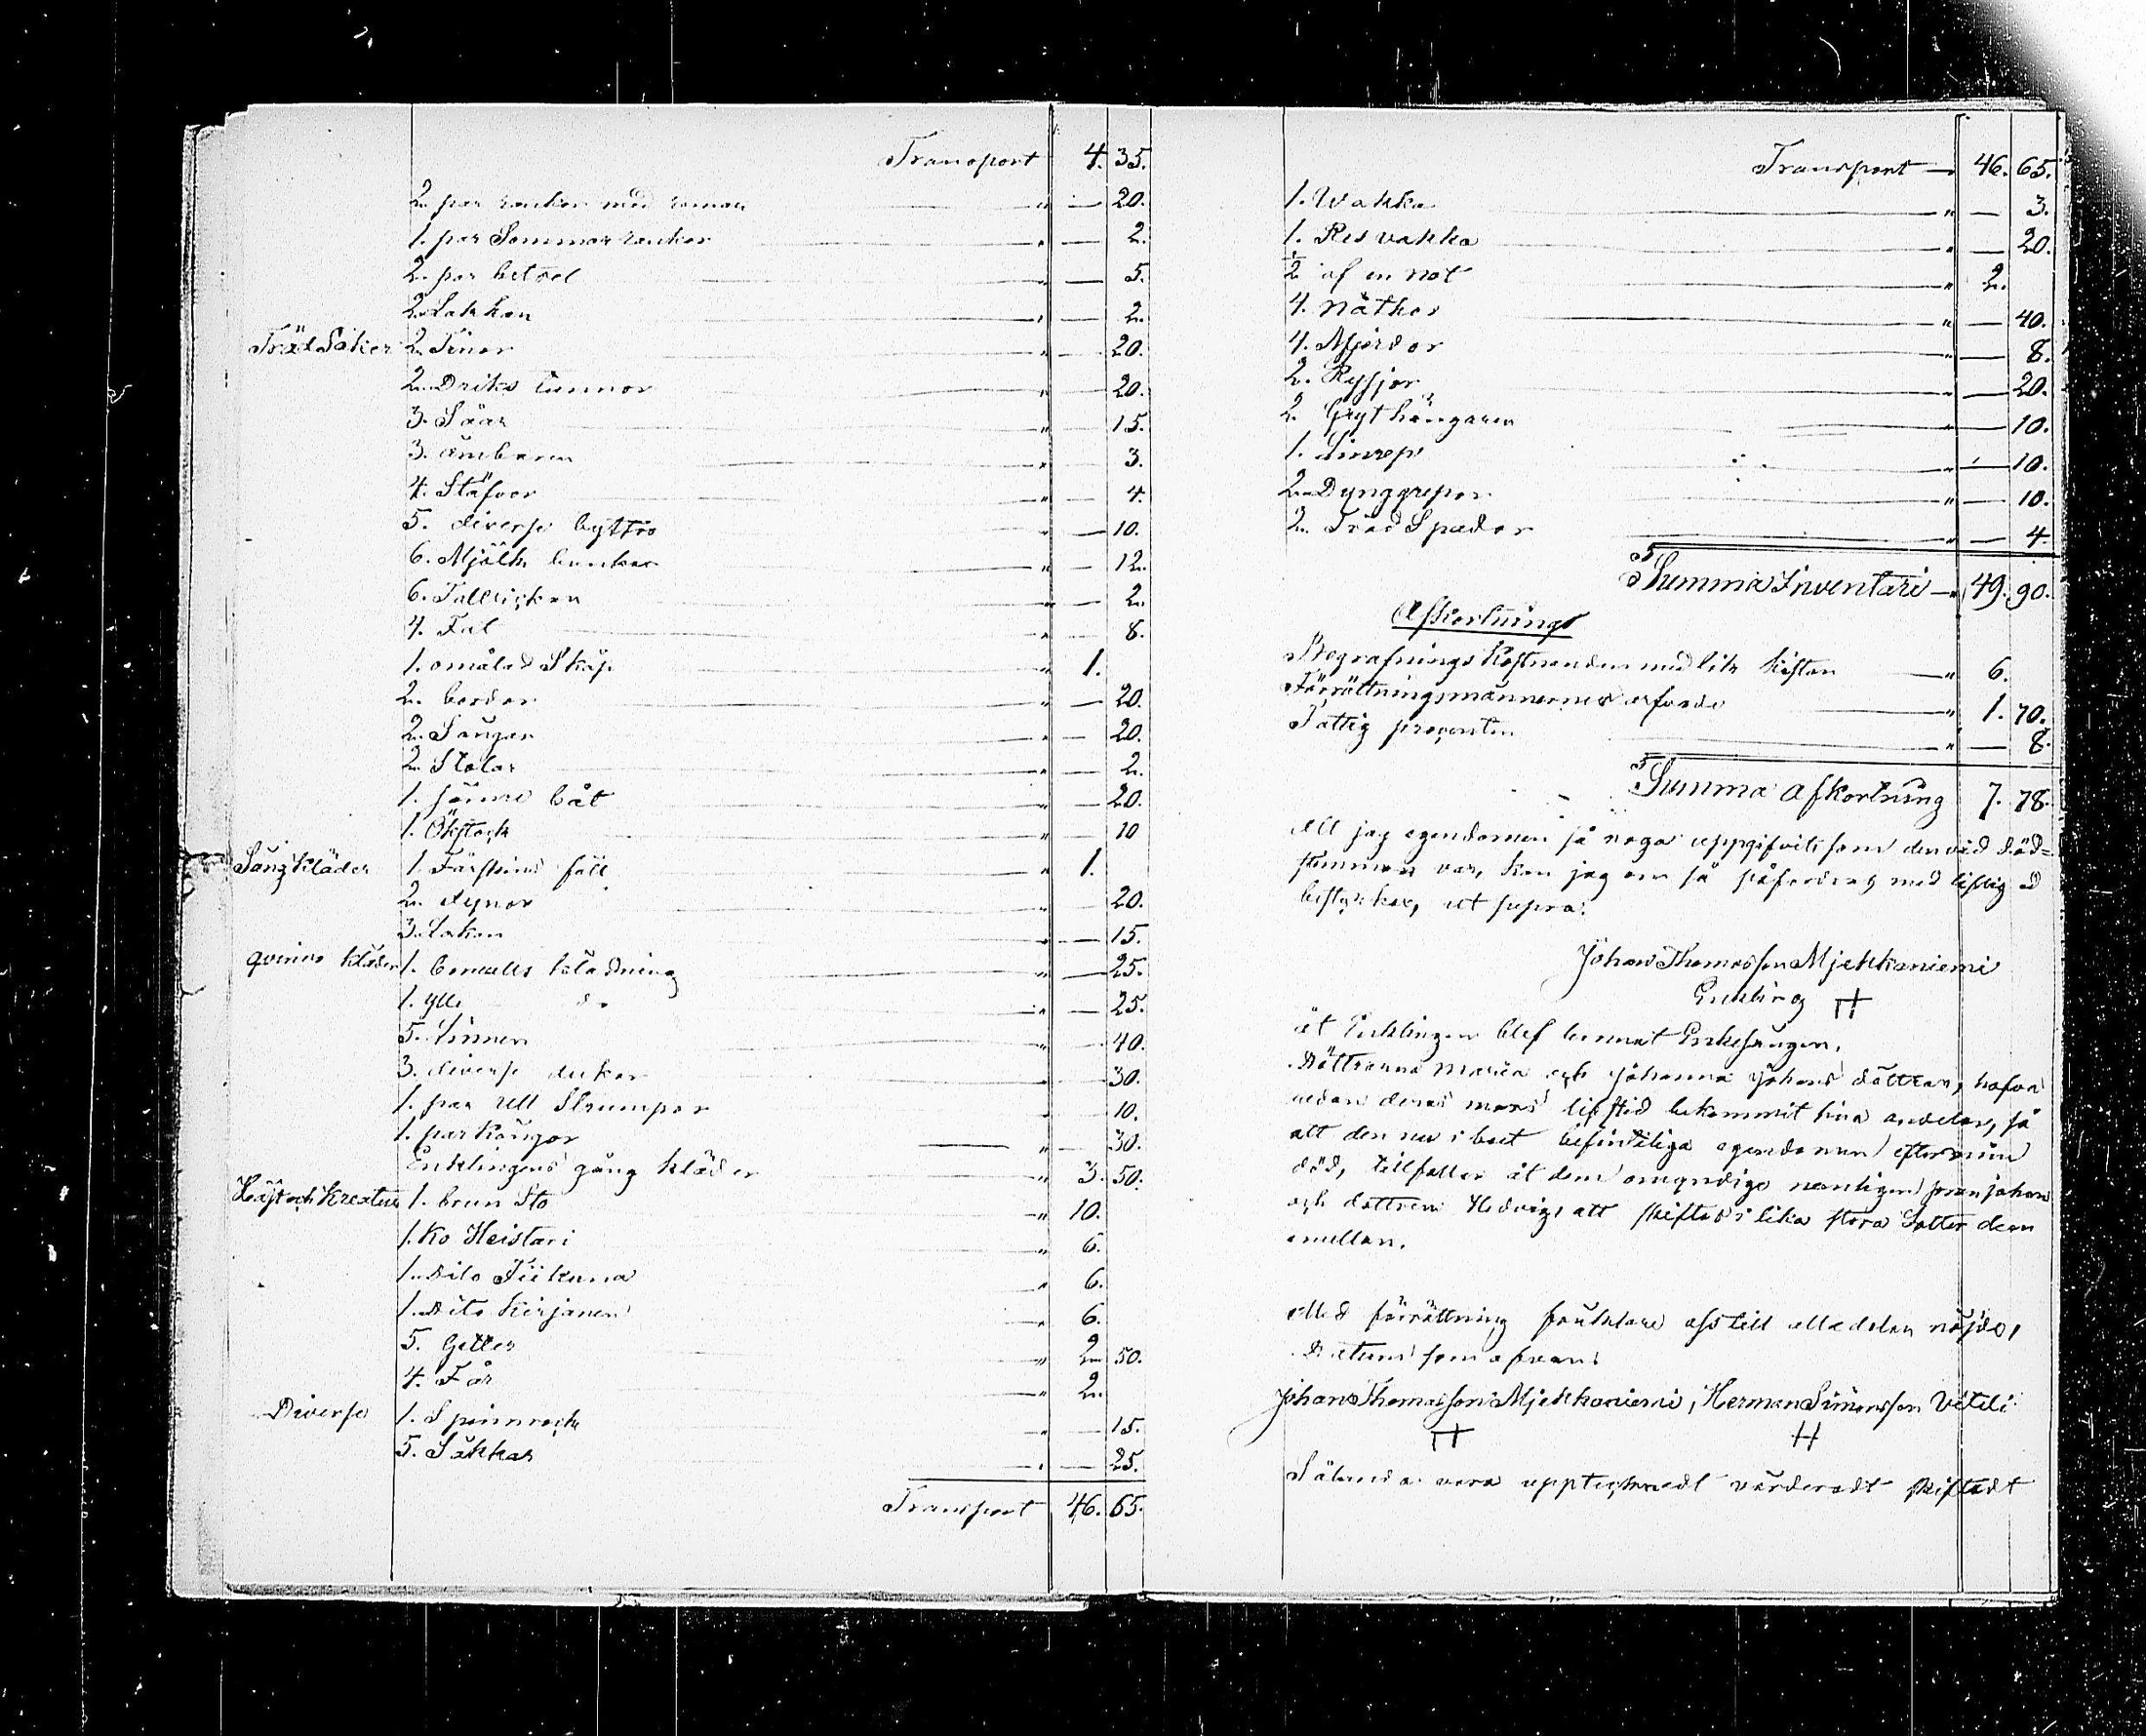 Transport 4. 35.
2. par rankor med roman " — 20.
1. par Sommar rankor " — 2.
2. par betsel " — 5.
2. Lakkan " — 2.
Träd Saker 2. Tinor " — 20.
2. Driks tunnor " — 20.
3. Såar " — 15.
3. ämbaren " — 3.
4. Stäfvor " — 4.
5. diverse byttor " — 10.
6. Mjölk bunkar " — 12.
6. Tallrickar " — 2.
4. Fat " — 8.
1. omålad Skåp " 1.
2. bordar " — 20.
2. Sängar " — 20.
2. Stolar " — 2.
1. båt " — 20.
1. Ökstock " — 10
Sängkläder 1. Fårskins fäll " 1.
2. dynor 20.
3. Lakan " — 15.
qvinno kläder 1. bomulls klädning " — 25.
1. ylle do " — 25.
5. Linnen " — 40.
3. diverse dukar — 30.
1. par Ull Strumpor — 10.
1. par Kängor " — 30.
Enklingens gång kläder " 3. 50.
Häst och Kreatur 1. brun Sto " 10.
1. Ko Heistari " 6.
1. Dito Tiikuna " 6.
1. Dito Kirjanen " 6.
5. Getter " 2. 50.
4. Får " 2.
Diverse 1. Spinnrock " — 15.
5. Säkkar " — 25.
Transport 46. 65.
Transport — 46. 65.
1. Wakka " — 3.
1. Res vakka " — 20.
½ af en not " 2.
4. Nätkor " — 40.
4. Mjerdor " — 8.
2. Ryssjor " — 20.
2. Gryt hängaren " — 10.
1. Linrep " — 10.
2. Dynggrepor " — 10.
2. Träd Spador " — 4.
Summa Inventari — 49. 90.
Afkortning
Begrafnings Kostnanden med lik kistan — " 6.
Förrättningsmännernes arfvode " 1. 70.
Fattig procenten " — 8.
Summa afkortning 7. 78.
Att jag egendomen så noga uppgifvit som den vid död=
stimman var, kan jag om så påfordras med liflig ed
bestyrka, ut supra.
Johan Thomasson Mjekkaniemi
Enkling
åt Enklingen blef lemnat Enkesängen.
Döttrarna Maria och Johanna Johans döttrar, hafva
redan deras mors lifstid bekommit sina andelar, så
att den nu i boet befintliga egendomen efter min
död, tillfaller åt dem omyndige nemligen sonen Johan
och dottren Hedvig, att skiftas i lika stora Lotter dem
emellan.
Med förrättning förklare oss till alla delar nöjde,
Datum som ofvan
Johan Thomasson Mjekkaniemi, Herman Simonsson Vitili
Sålunda vara upptecknadt värderadt skiftadt